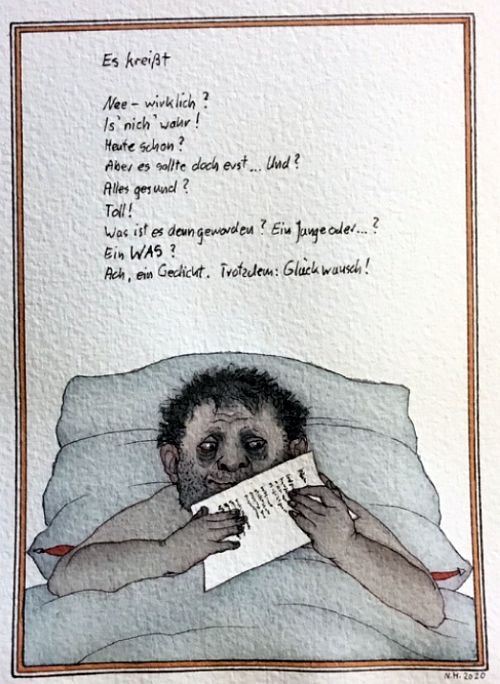 Es kreißt
Nee – wirklich?
Is' nich' wahr!
Heute schon?
Aber es sollte doch erst... Und?
Alles gesund?
Toll!
Was ist es denn geworden? Ein Junge oder...?
Ein WAS?
Ach, ein Gedicht. Trotzdem: Glückwunsch!
N.H. 2020